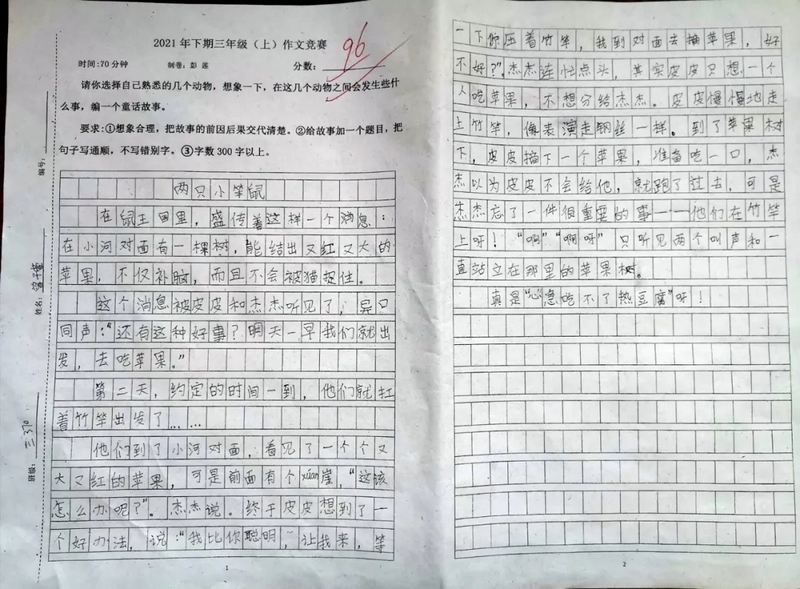 2021 年下期三年级（上）作文竞赛
时间:70 分钟 制卷: 彭 莲 分数:
96
请你选择自己熟悉的几个动物，想象一下，在这几个动物之间会发生些什
么事，编一个童话故事。
要求:①想象合理，把故事的前因后果交代清楚。②给故事加一个题目，把
句子写通顺，不写错别字。③字数 300 字以上。
编号:
姓名:
班级:
两只小笨鼠
在鼠王国里，盛传着这样一个消息：
在小河对面有一棵树，能结出又红又大的
苹果，不仅补脑，而且不会被猫捉住。
这个消息被皮皮和杰杰听见了，异口
同声：“还有这种好事？明天一早我们就出
发，去吃苹果。”
第二天，约定的时间一到，他们就扛
着竹竿出发了……
他们到了小河对面，看见了一个个又
大又红的苹果，可是前面有个xuán崖，“这该
怎么办呢？”。杰杰说。终于皮皮想到了一
个好办法，说：“我比你聪明，让我来，等
1
一下你压着竹竿，我到对面去摘苹果，好
不好？”杰杰连忙点头，其实皮皮只想一个
人吃苹果，不想分给杰杰。皮皮慢慢地走
上竹竿，像表演走钢丝一样。到了苹果树
下，皮皮摘下一个苹果，准备吃一口，杰
杰以为皮皮不会给他，就跑了过去，可是
杰杰忘了一件很重要的事——他们在竹竿
上呀！“啊”“啊呀”只听见两个叫声和一
直站立在那里的苹果树。
真是“心急吃不了热豆腐”呀！
2